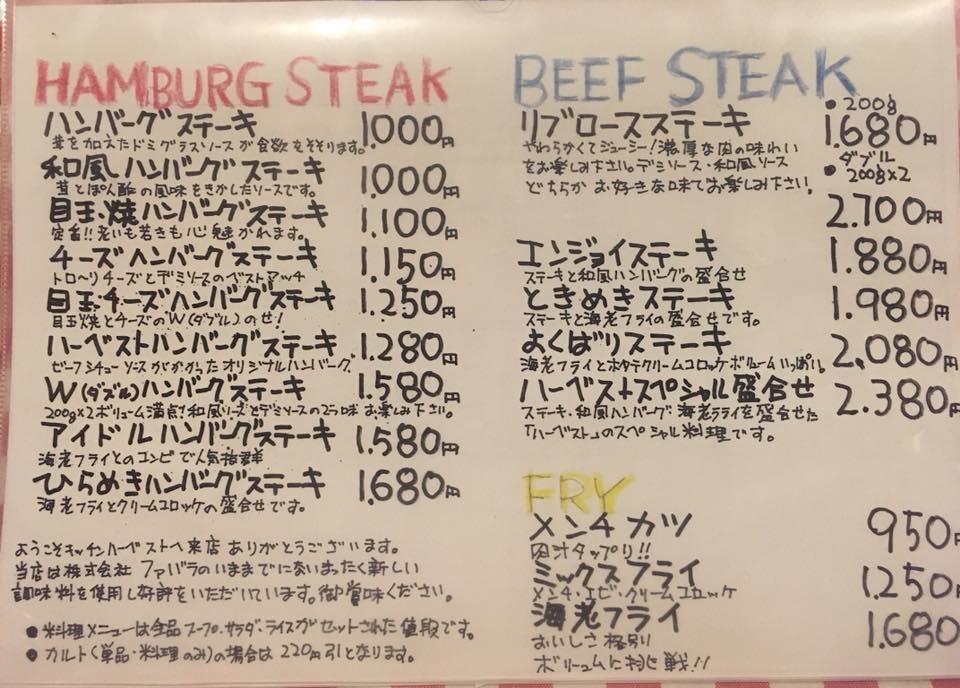 HAMBURG STEAK
ハンバーグステーキ 1.000円
茸を加えたドミグラスソースが食欲をそそります。
和風ハンバーグステーキ 1.000円
茸とぽん酢の風味をきかしたソースです。
目玉焼ハンバーグステーキ 1.100円
定番!!老いも若きも心魅かれます。
チーズハンバーグステーキ 1.150円
トロ〜リチーズとデミソースのベストマッチ
目玉・チーズハンバーグステーキ 1.250円
目玉焼とチーズのW(ダブル)のせ!
ハーベストハンバーグステーキ 1.280円
ビーフシチューソースがかかったオリジナルハンバーグ
W(ダブル)ハンバーグステーキ 1.580円
200g×2ボリューム満点!和風ソースとデミソースの2つの味お楽しみ下さい。
アイドルハンバーグステーキ 1.580円
海老フライとのコンビで人気抜群
ひらめきハンバーグステーキ 1.680円
海老フライとクリームコロッケの盛合せです。
ようこそキッチンハーベストへ来店ありがとうございます。
当店は株式会社 ファバラのいままでにないまったく新しい
調味料を使用し好評をいただいています。御賞味ください。
●料理メニューは全品スープ・サラダ・ライスがセットされた値段です。
●カルト(単品・料理のみ)の場合は220円引となります。
BEEF STEAK
リブロースステーキ ●200g 1.680円
やわらかくてジューシー!濃厚な肉の味わい
をお楽しみ下さい。デミソース・和風ソース
どちらかお好きな味でお楽しみ下さい。
ダブル
●200g×2
2.700円
エンジョイステーキ 1.880円
ステーキと和風ハンバーグの盛合せ
ときめきステーキ 1.980円
ステーキと海老フライの盛合せです。
よくばりステーキ 2.080円
海老フライとホタテクリームコロッケボリュームいっぱい。
ハーベストスペシャル盛合せ 2.380円
ステーキ・和風ハンバーグ 海老フライを盛合せた
「ハーベスト」のスペシャル料理です。
FRY
メンチカツ 950円
肉汁タップリ!!
ミックスフライ 1.250円
メンチ・エビ・クリームコロッケ
海老フライ 1.680
おいしさ格別
ボリュームに挑戦!!